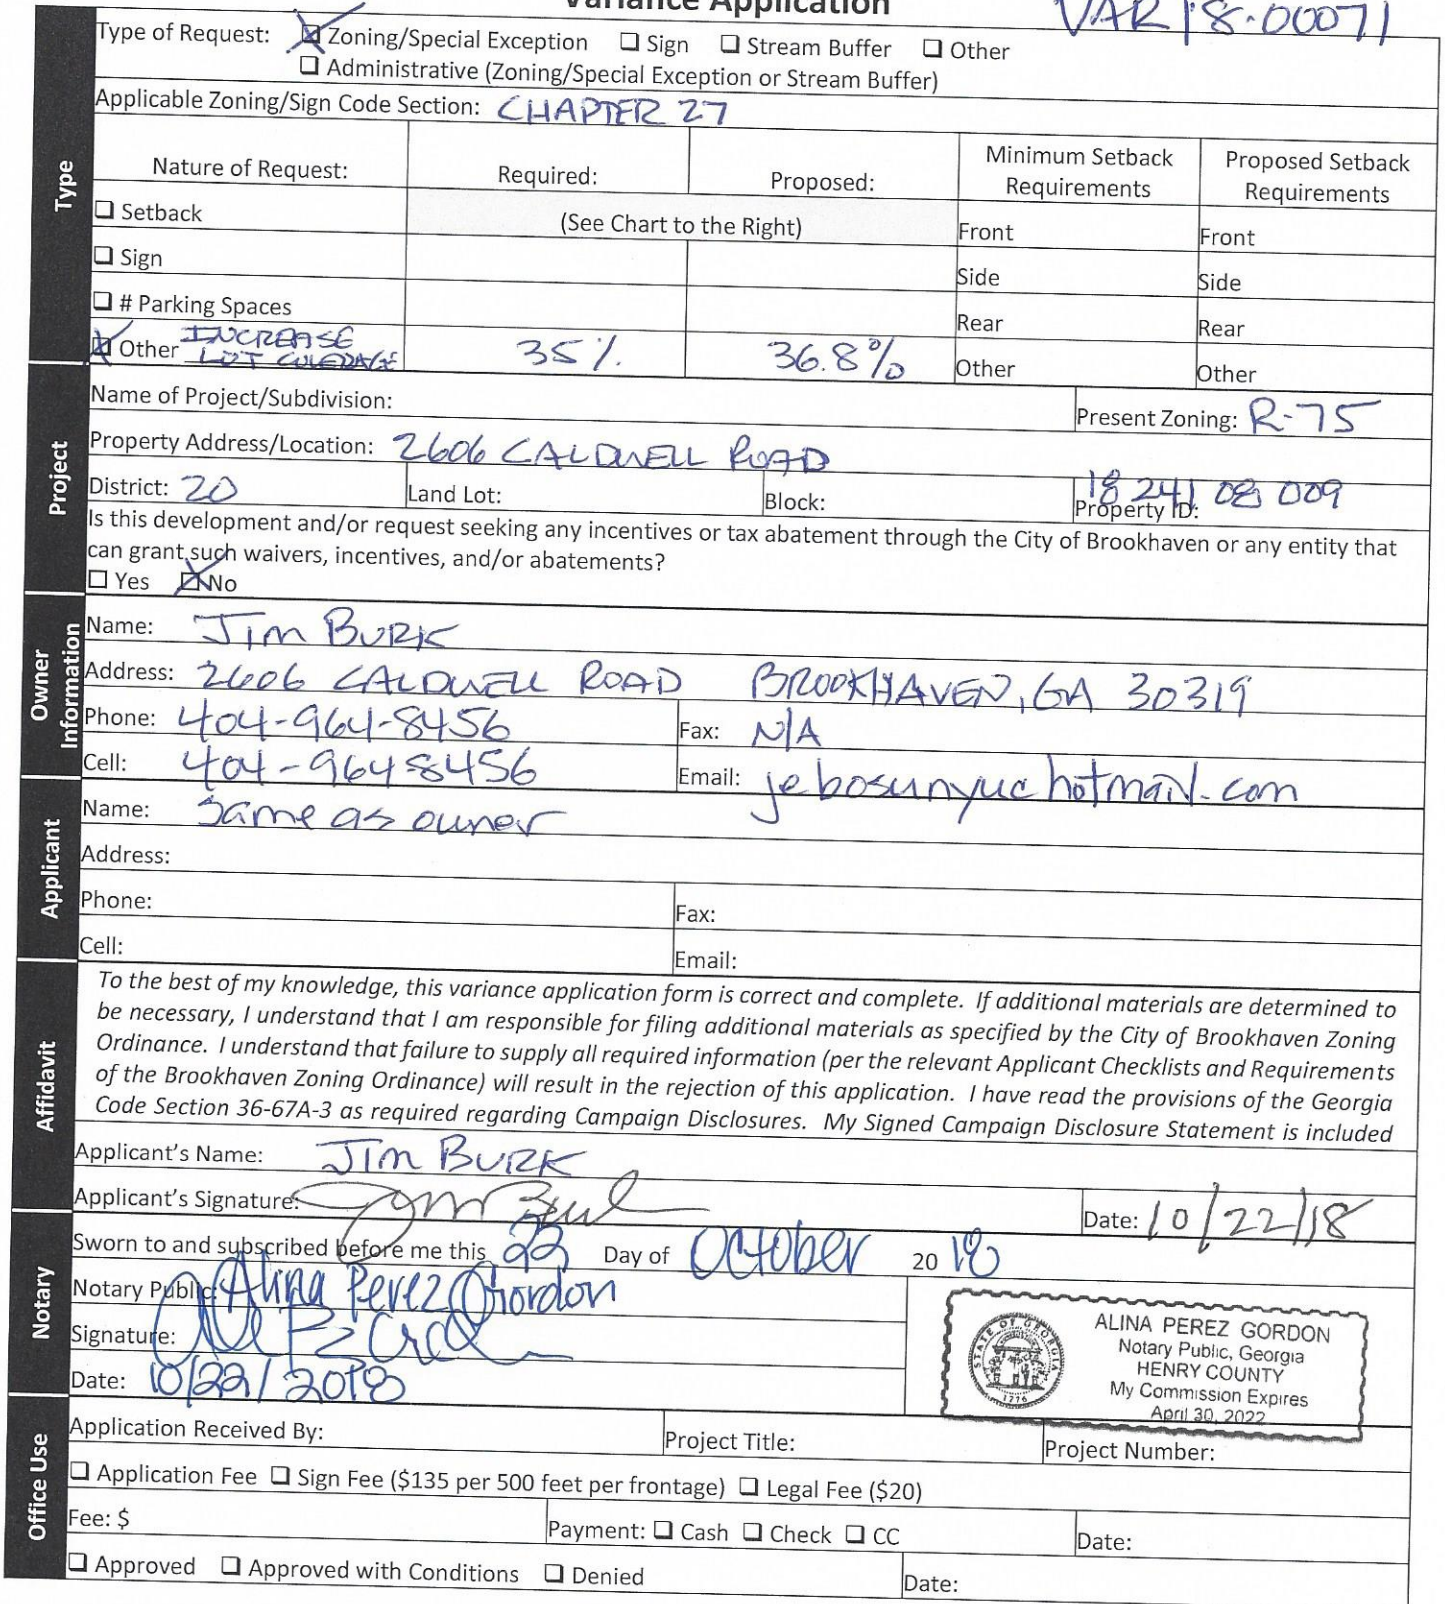 Variance Application
VAR18-00071
Type of Request: ☒ Zoning/Special Exception ☐ Sign ☐ Stream Buffer ☐ Other
☐ Administrative (Zoning/Special Exception or Stream Buffer)
Applicable Zoning/Sign Code Section: CHAPTER 27
Type
Nature of Request: Required: Proposed: Minimum Setback Requirements Proposed Setback Requirements
☐ Setback (See Chart to the Right) Front Front
☐ Sign Side Side
☐ # Parking Spaces Rear Rear
☒ Other INCREASE LOT COVERAGE 35% 36.8% Other Other
Project
Name of Project/Subdivision: Present Zoning: R-75
Property Address/Location: 2606 CALDWELL ROAD
District: 20 Land Lot: Block: Property ID: 18 241 08 009
Is this development and/or request seeking any incentives or tax abatement through the City of Brookhaven or any entity that
can grant such waivers, incentives, and/or abatements?
☐ Yes ☒ No
Owner Information
Name: JIM BURK
Address: 2606 CALDWELL ROAD BROOKHAVEN, GA 30319
Phone: 404-964-8456 Fax: N/A
Cell: 404-964-8456 Email: hotmail.com
Applicant
Name: Same as owner
Address:
Phone: Fax:
Cell: Email:
Affidavit
To the best of my knowledge, this variance application form is correct and complete. If additional materials are determined to
be necessary, I understand that I am responsible for filing additional materials as specified by the City of Brookhaven Zoning
Ordinance. I understand that failure to supply all required information (per the relevant Applicant Checklists and Requirements
of the Brookhaven Zoning Ordinance) will result in the rejection of this application. I have read the provisions of the Georgia
Code Section 36-67A-3 as required regarding Campaign Disclosures. My Signed Campaign Disclosure Statement is included
Applicant's Name: JIM BURK
Applicant's Signature: Date: 10/22/18
Notary
Sworn to and subscribed before me this 22 Day of October 20 18
Notary Public: Alina Perez Gordon
Signature:
Date: 10/22/2018
STATE OF GEORGIA
1776
ALINA PEREZ GORDON
Notary Public, Georgia
HENRY COUNTY
My Commission Expires
April 30, 2022
Office Use
Application Received By: Project Title: Project Number:
☐ Application Fee ☐ Sign Fee ($135 per 500 feet per frontage) ☐ Legal Fee ($20)
Fee: $ Payment: ☐ Cash ☐ Check ☐ CC Date:
☐ Approved ☐ Approved with Conditions ☐ Denied Date: